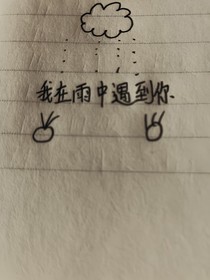 我在雨中遇到你